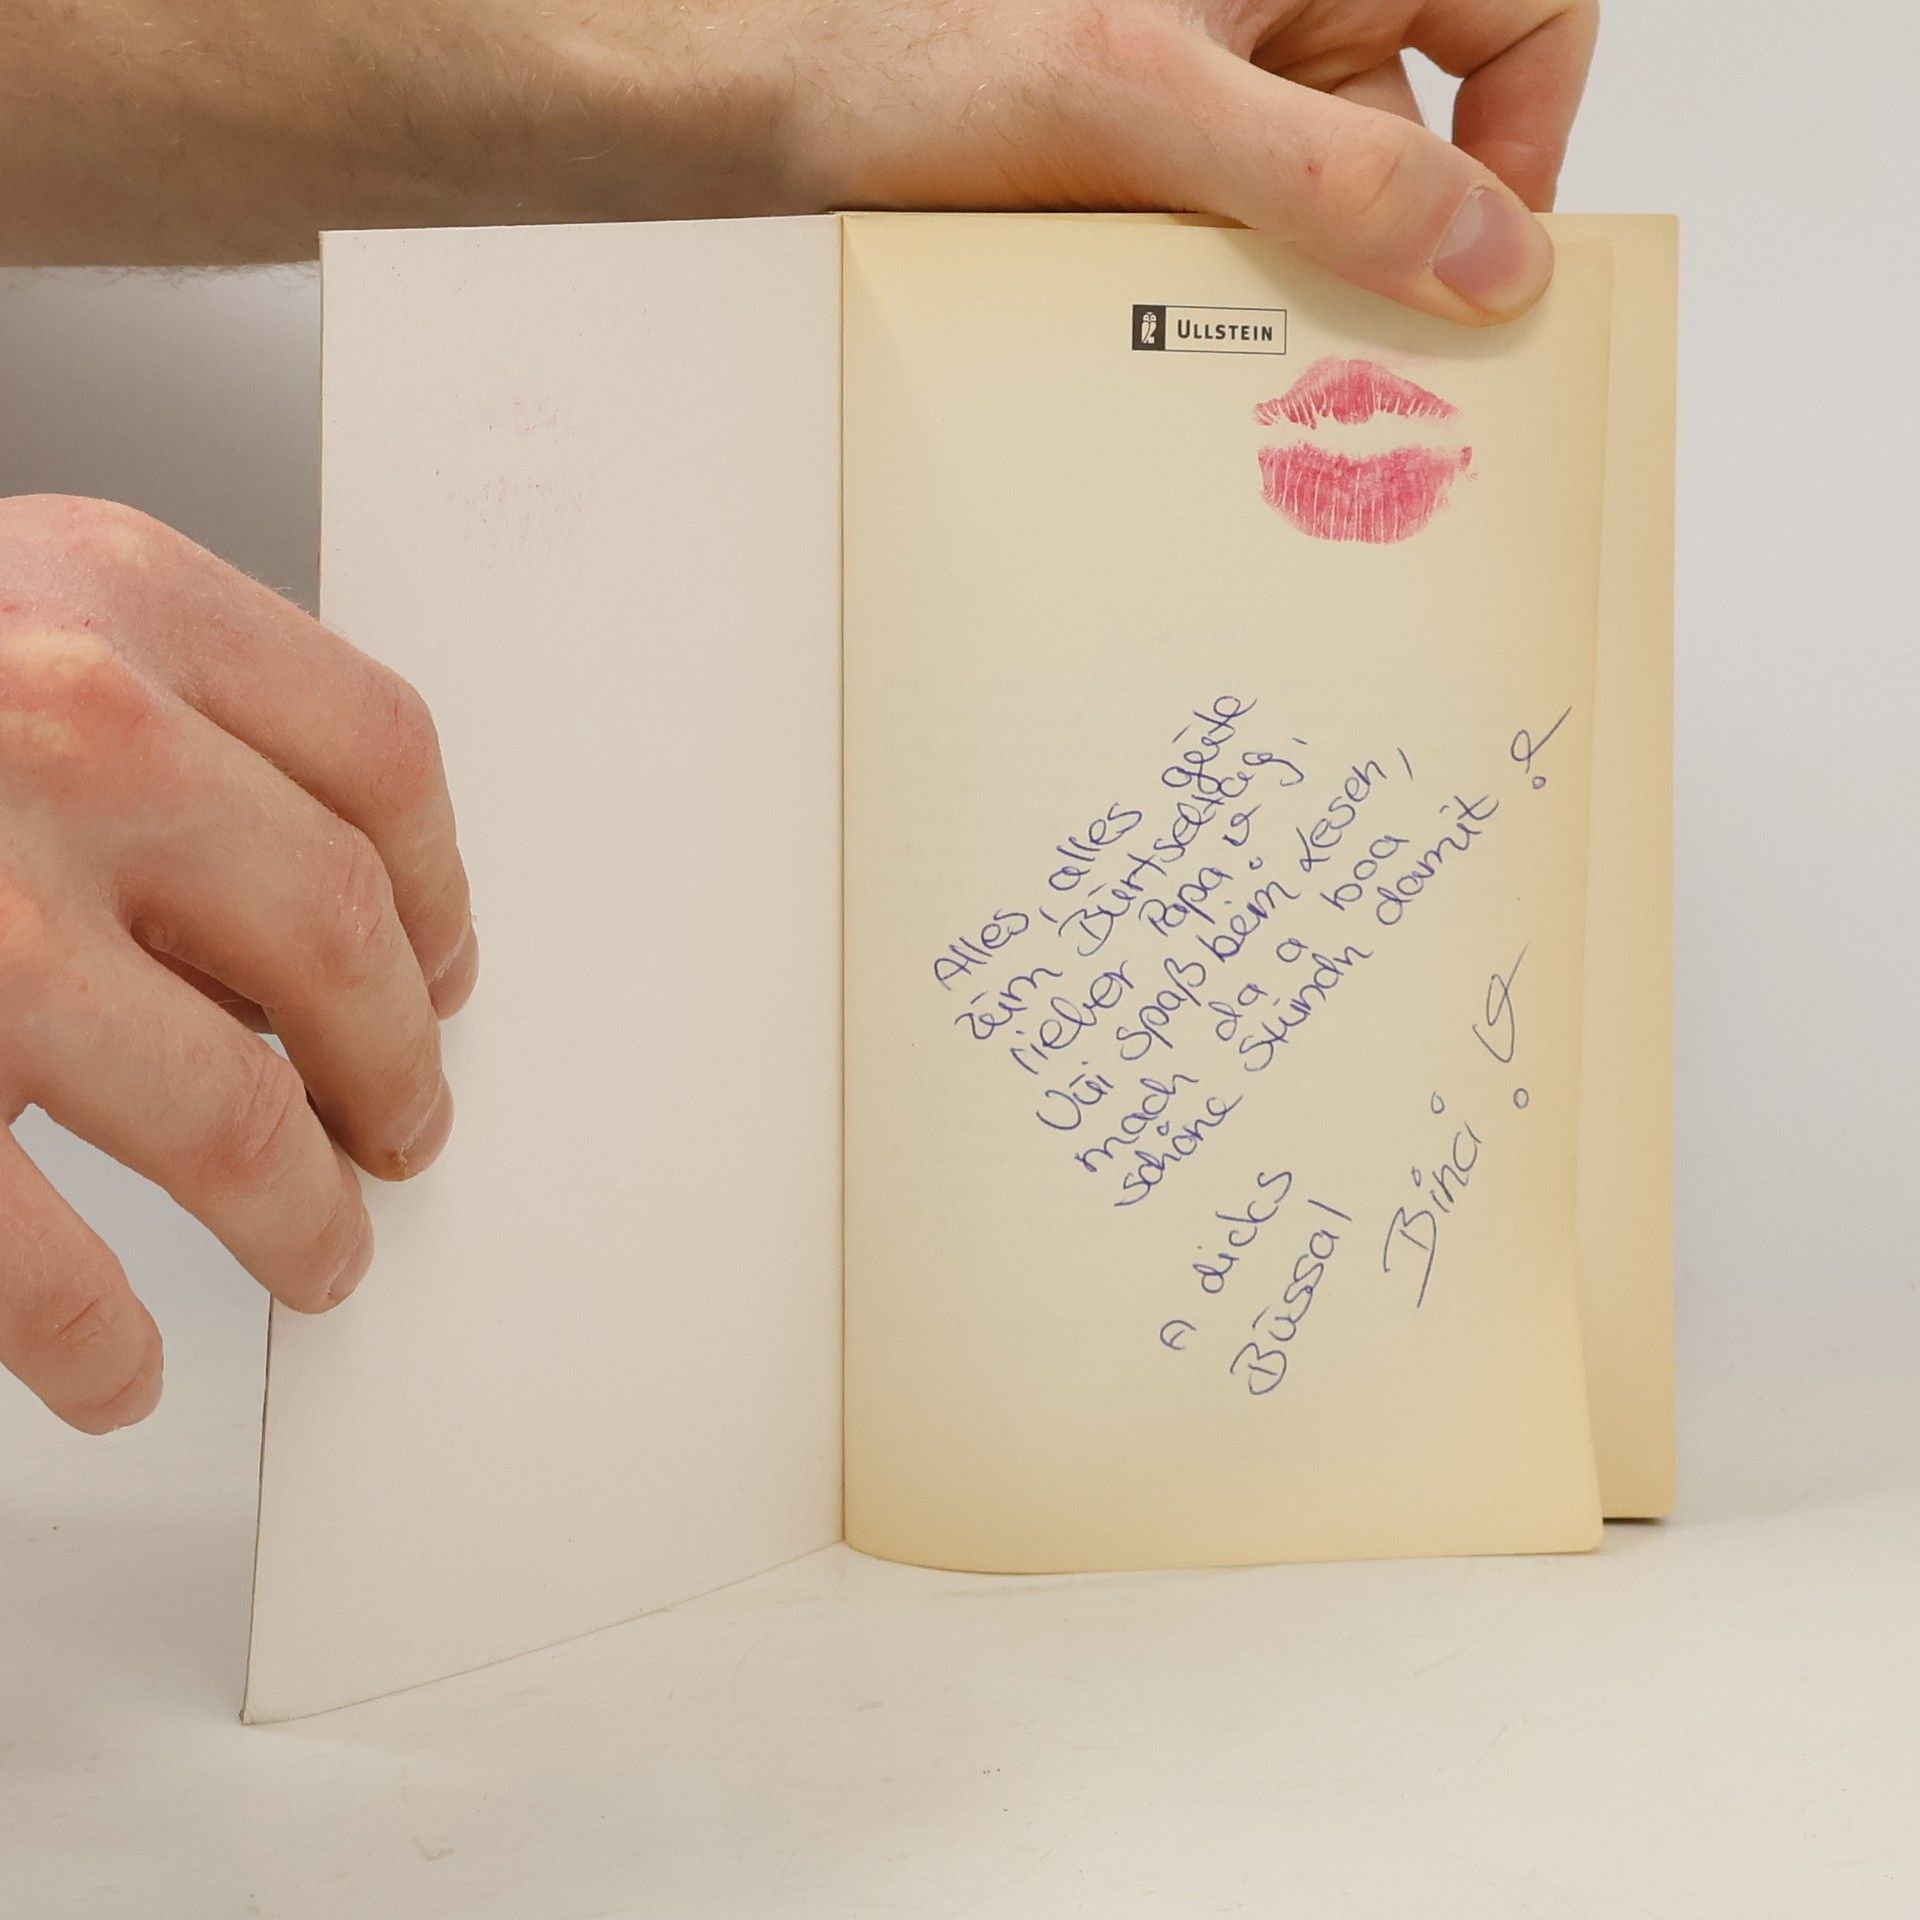 ULLSTEIN
Alles, alles gute
zum Burtseltag,
lieber Papa
Vui Spaß beim Lesen,
mach da a boa
schöne Stundn damit
A dicks
Bussal
Bina